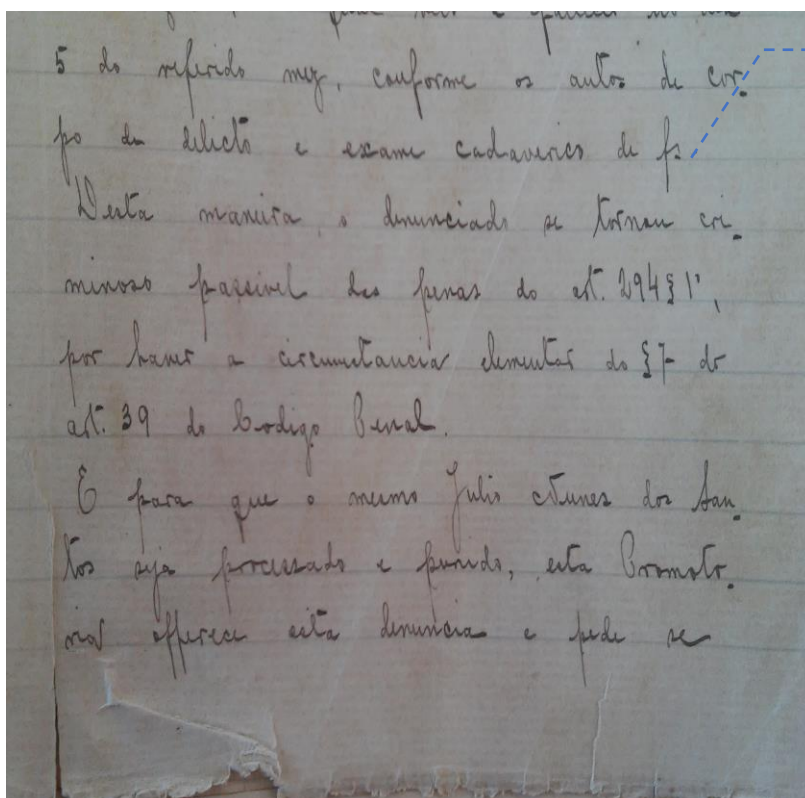 5 do referido mez, conforme os autos de cor-
po de delicto e exame cadaverico de fs
Desta maneira, o denunciado se tornou cri-
minoso passivel das penas do art. 294 § 1º,
por haver a circumstancia elementar do § 7- do
art. 39 do Codigo Penal.
E para que o mesmo Julio Nunes dos San-
tos seja processado e punido, esta Promoto-
ria offerece esta denuncia e pede se